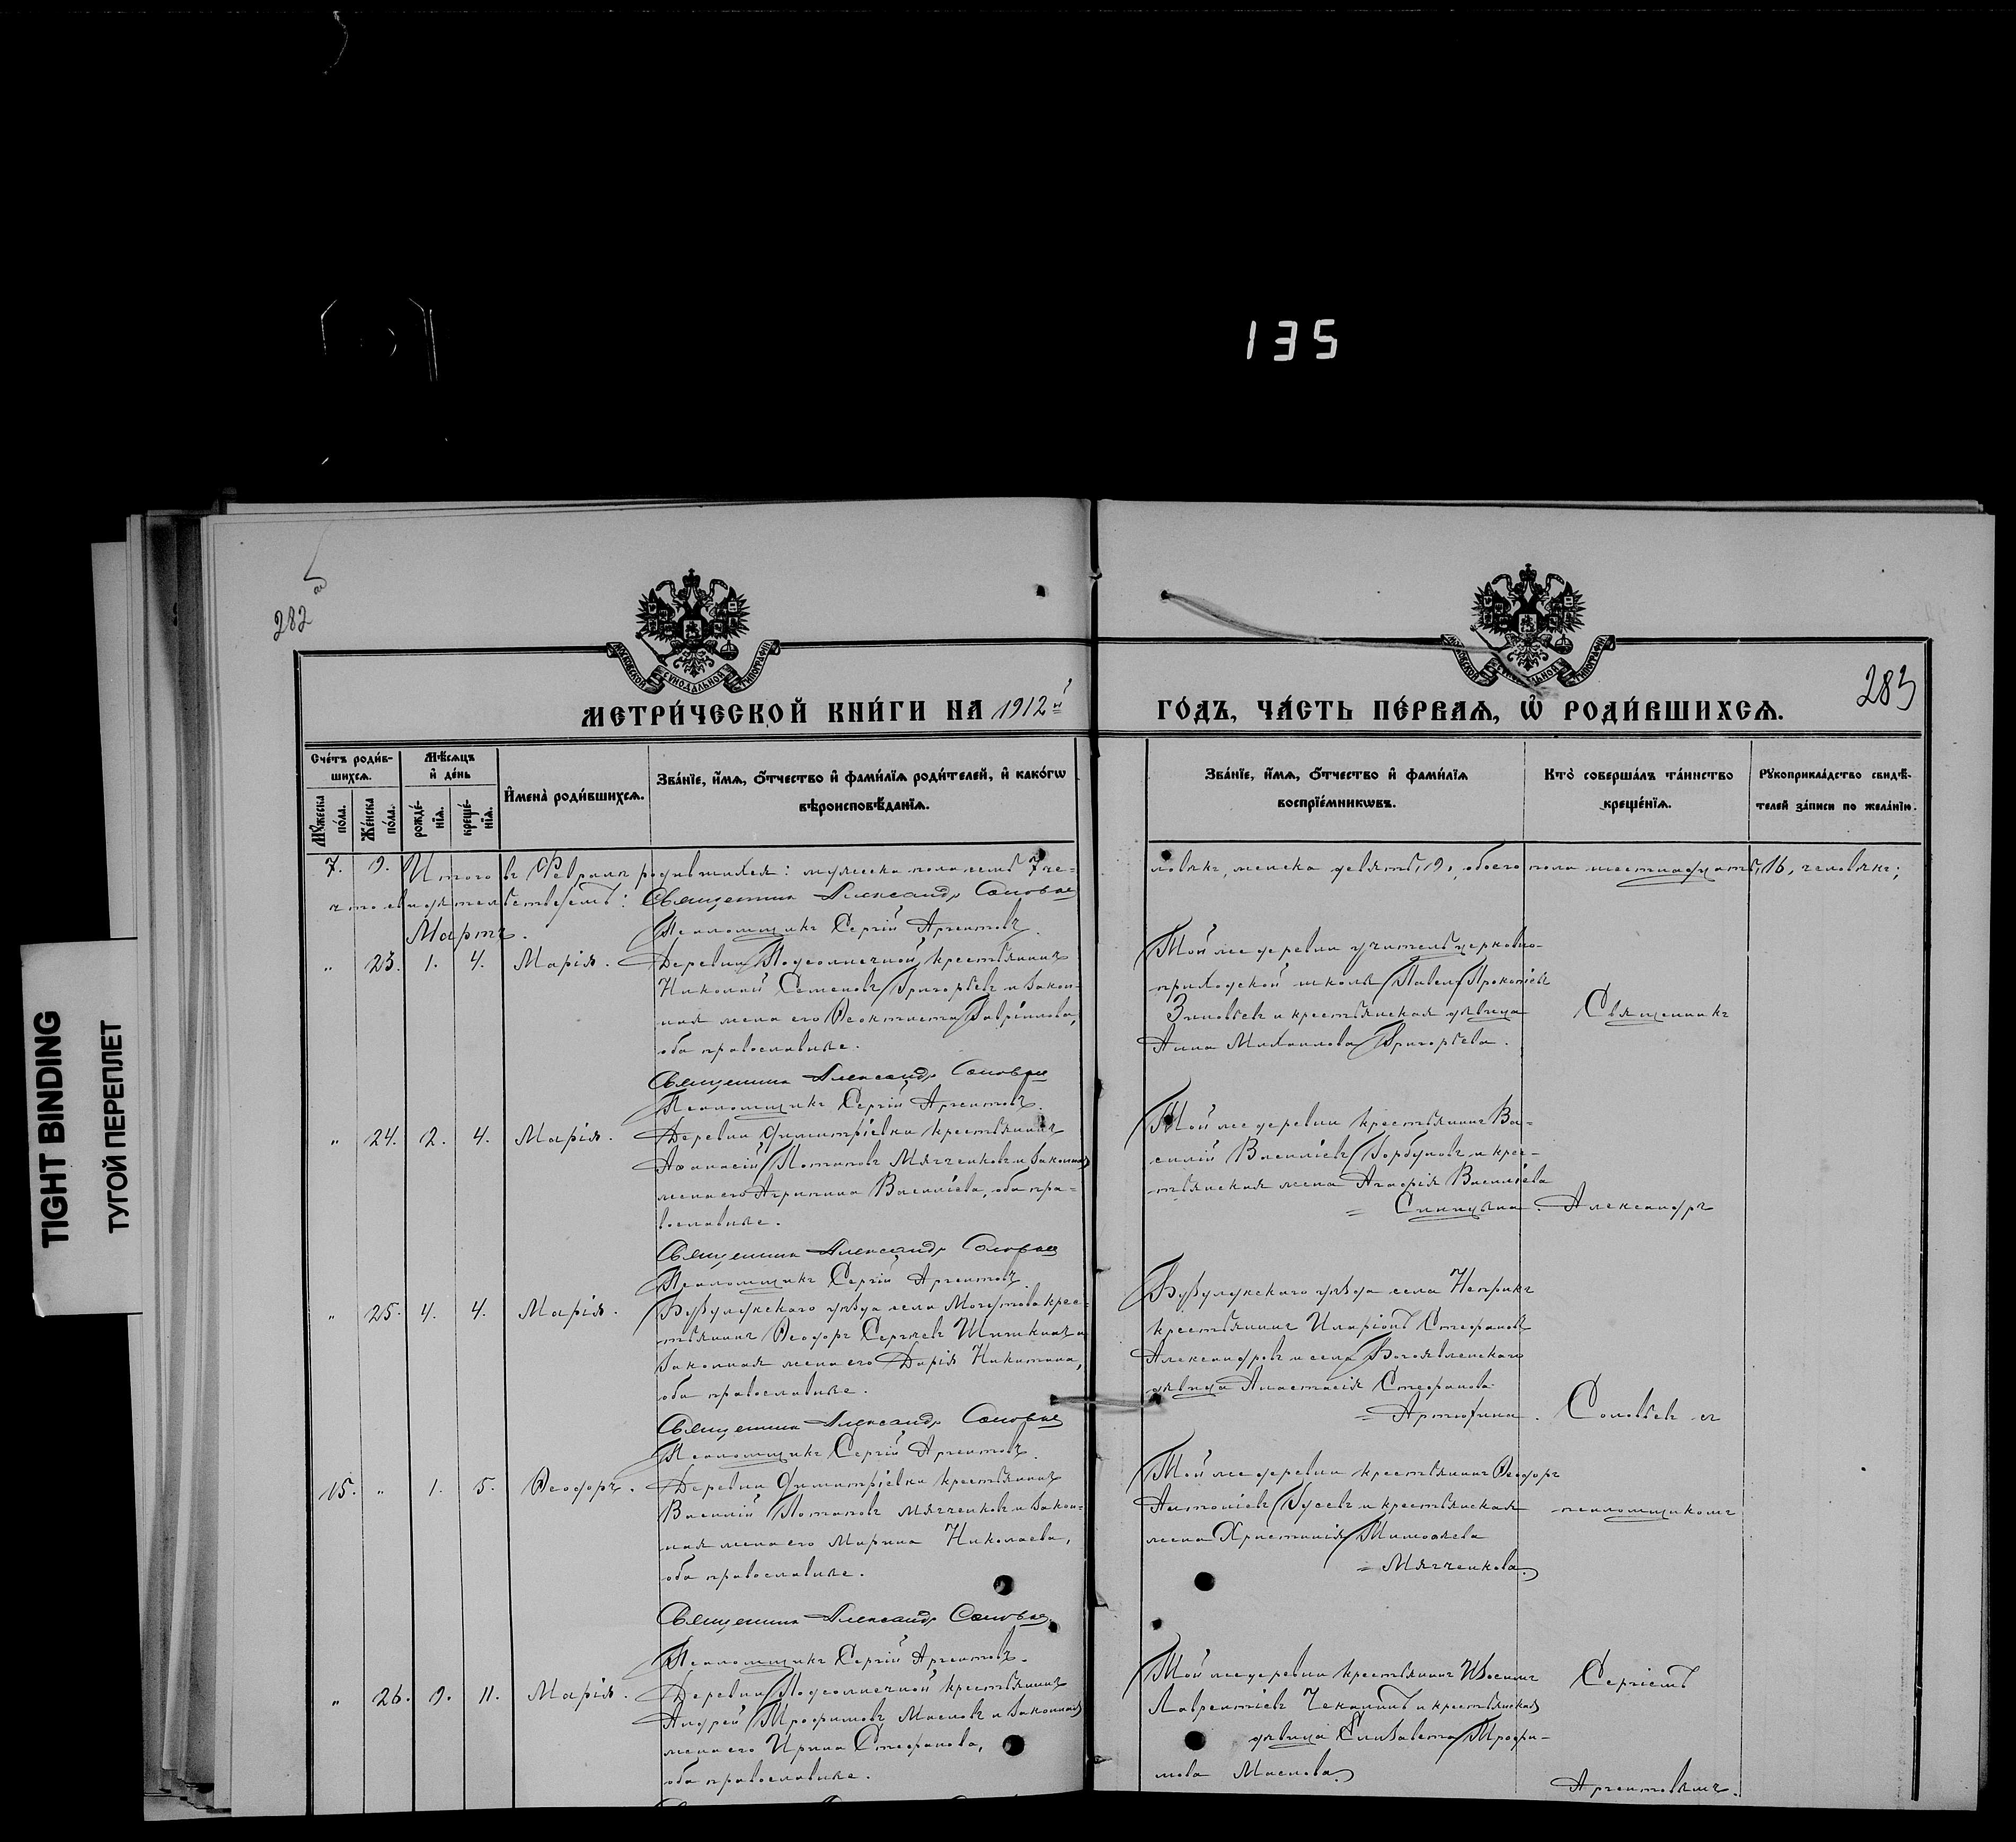 135
TIGHT BINDING
ТУГОЙ ПЕРЕПЛЕТ
282
283
МЕТРИ́ЧЕСКОЙ КНИ́ГИ НА 1912й
ГО́ДЪ, ЧА́СТЬ ПЕ́РВАѦ, Ѡ҆ РОДИ́ВШИХСѦ.
Сче́тъ роди́в-
шихсѧ.
Мѣ́сѧцъ
и҆ де́нь
Мꙋ́жеска по́ла.
Же́нска по́ла.
рожде́-
нїѧ.
креще́-
нїѧ.
И҆мена̀ роди́вшихсѧ.
Зва́нїе, и҆́мѧ, ѻ҆́тчество и҆ фами́лїѧ роди́телей, и҆ како́гѡ
вѣроисповѣ́данїѧ.
Зва́нїе, и҆́мѧ, ѻ҆́тчество и҆ фами́лїѧ
воспрїе́мникѡвъ.
Кто̀ соверша́лъ та́инство
креще́нїѧ.
Рꙋкоприкла́дство свидѣ́-
телей за́писи по жела́нїю.
7. 9. Итого въ Февралѣ родившихся: мужеска пола семь 7 че-
ловѣкъ, женска девять, 9, обоего пола шестнадцать, 16, человѣкъ;
что свидѣтельствуемъ: Священникъ Александръ Соловьев
Мартъ.
Псаломщикъ Сергій Аргентовъ.
" 23. 1. 4. Марія.
Деревни Подсолнечной крестьянинъ
Николай Семеновъ Григорьевъ и закон-
ная жена его Ѳеоктиста Гавріилова,
оба православные.
Той же деревни учитель церковно-
приходской школы Павелъ Прокопіевъ
Зиновьевъ и крестьянская дѣвица
Анна Михаилова Григорьева.
Священникъ
Священникъ Александръ Соловьев
Псаломщикъ Сергій Аргентовъ.
" 24. 2. 4. Марія.
Деревни Димитріевки крестьянинъ
Аѳанасій Потаповъ Мягченковъ и законная
жена его Агрипина Василіева, оба пра-
вославные.
Той же деревни крестьянинъ Ва-
силій Василіевъ Горбуновъ и крес-
тьянская жена Агафія Василіева
= Синицына.
Александръ
Священникъ Александръ Соловьев
Псаломщикъ Сергій Аргентовъ.
" 25. 4. 4. Марія.
Бузулукскаго уѣзда села Могутова крес-
тьянинъ Ѳеодоръ Сергѣевъ Шишкинъ и
законная жена его Дарія Никитина,
оба православные.
Бузулукскаго уѣзда села Неприкъ
крестьянинъ Иларіонъ Стефановъ
Александровъ и села Богоявленскаго
дѣвица Анастасія Стефанова
= Артюхина.
Соловьевъ съ
Священникъ Александръ Соловьев
Псаломщикъ Сергій Аргентовъ.
15. " 1. 5. Ѳеодоръ.
Деревни Димитріевки крестьянинъ
Василій Потаповъ Мягченковъ и закон-
ная жена его Марина Николаева,
оба православные.
Той же деревни крестьянинъ Ѳеодоръ
Антоніевъ Гусевъ и крестьянская
жена Христинія Тимоѳеева
= Мягченкова.
псаломщикомъ
Священникъ Александръ Соловьев
Псаломщикъ Сергій Аргентовъ.
" 26. 9. 11. Марія.
Деревни Подсолнечной крестьянинъ
Андрей Трофимовъ Масловъ и законная
жена его Ирина Стефанова,
оба православные.
Той же деревни крестьянинъ
Лаврентіевъ Чекалинъ и крестьянская
дѣвица Елизавета Трофи-
мова Маслова.
Сергіемъ
Аргентовымъ.